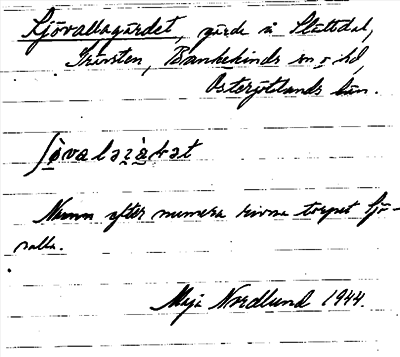 Sjövallagärdet, gärde i Slättdal,
Grävsten, Bankekinds sn o hd,
Östergötlands län.
ʃò̱valəʒæ̀ḍət
Namn efter numera rivna torpet Sjö-
valla.
Maja Nordlund 1944.